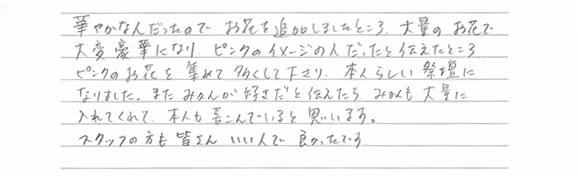 華やかなんだったので お花を追加しましたところ、大量の お花で
大変豪華になり、ピンクのイメージの人だったと伝えたところ
ピンクのお花を 集めて 多くして下さり、本人らしい 祭壇に
なりました。また みかんが好きだと伝えたら みかんも大量に
入れてくれて、本人も喜こんでいると思います。
スタッフの方も皆さん いい人で 良かったです